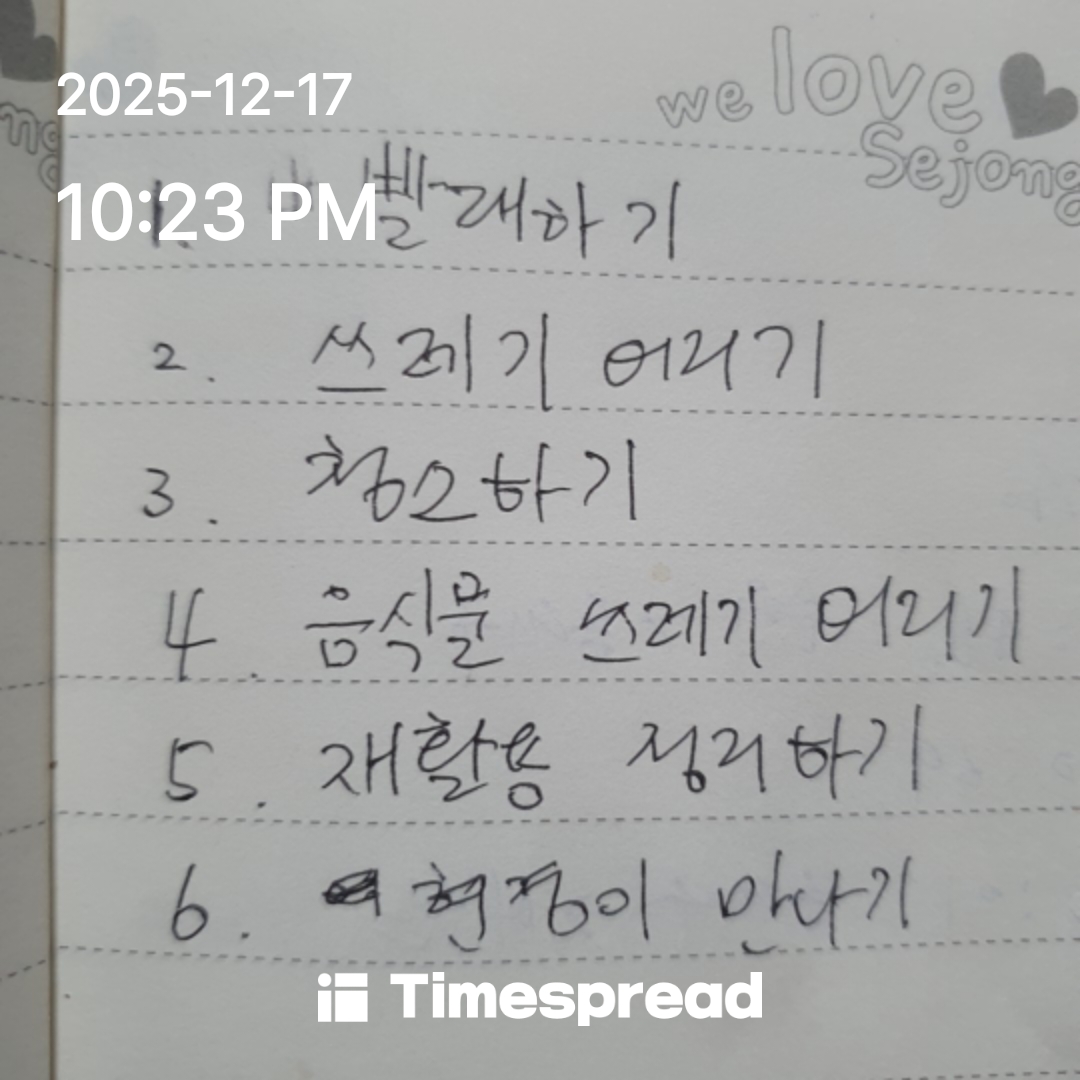 2025-12-17
we love
Sejong
10:23 PM
1. 빨래하기
2. 쓰레기 버리기
3. 청소하기
4. 음식물 쓰레기 버리기
5. 재활용 정리하기
6. 현정이 만나기
Timespread